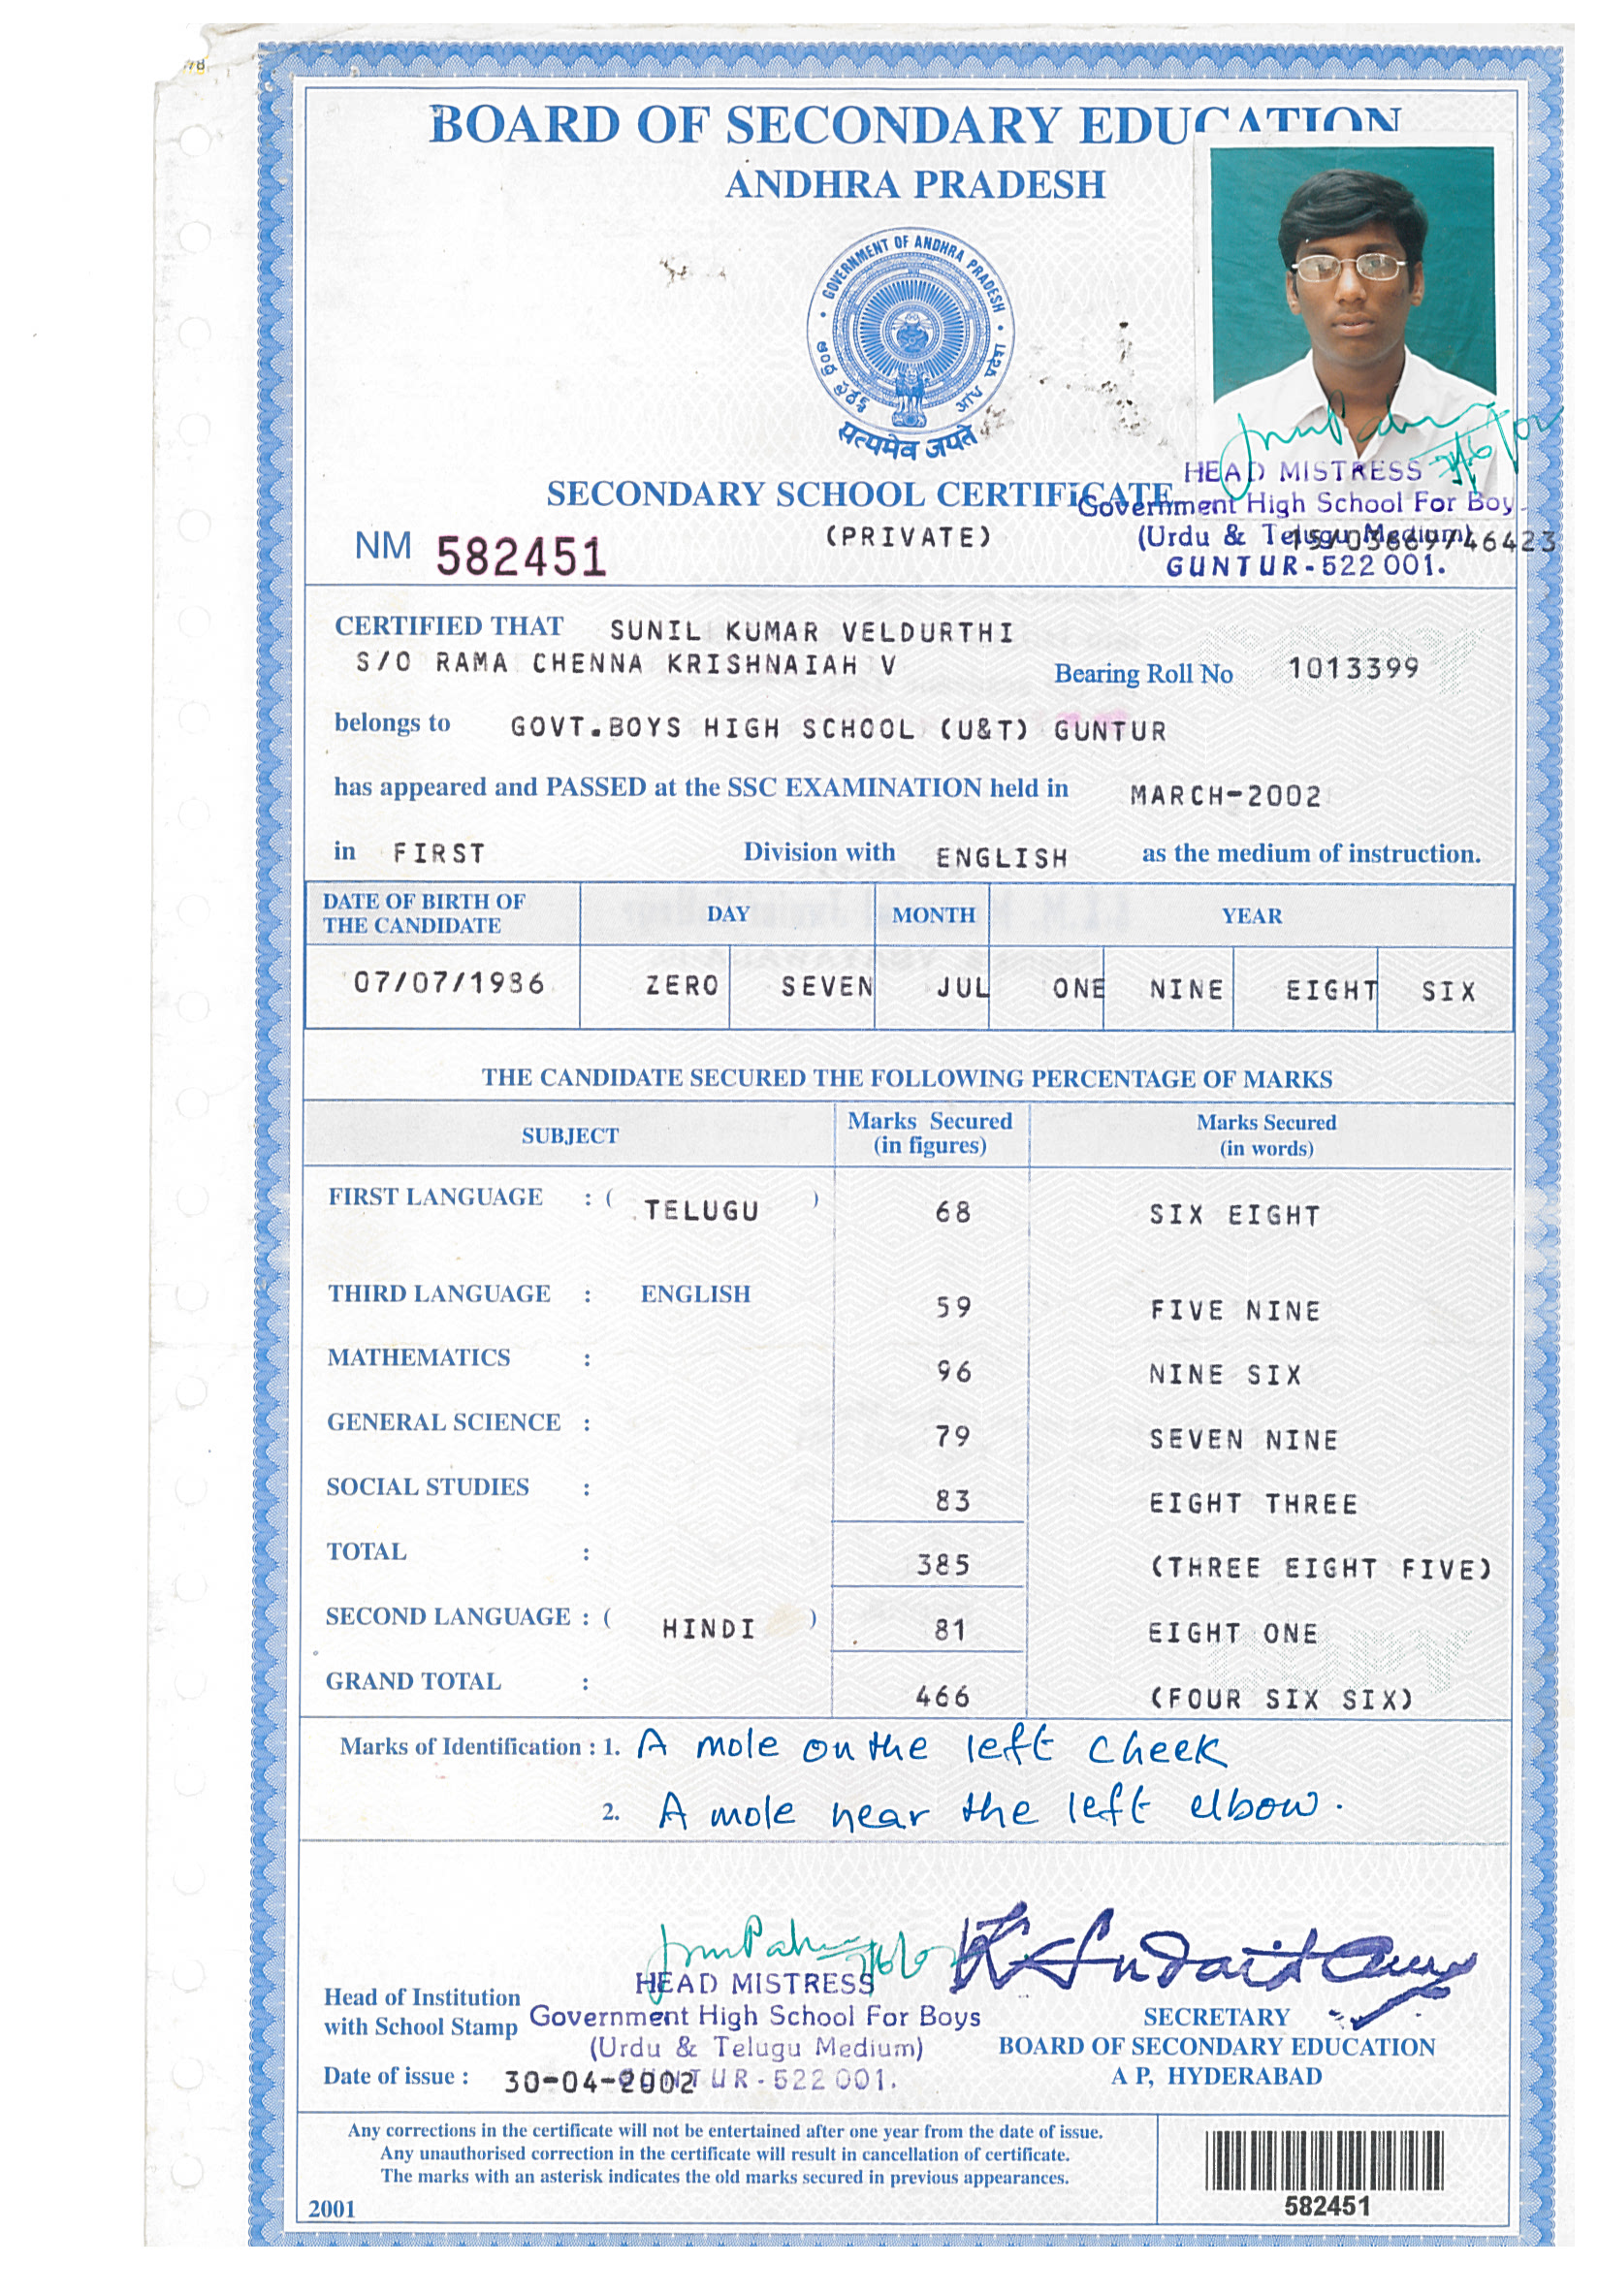 BOARD OF SECONDARY EDUCATION
ANDHRA PRADESH
GOVERNMENT OF ANDHRA PRADESH
सत्यमेव जयते
SECONDARY SCHOOL CERTIFICATE
HEAD MISTRESS
Government High School For Boy
(PRIVATE)
(Urdu & Telugu Medium)
NM 582451
GUNTUR-522 001.
CERTIFIED THAT SUNIL KUMAR VELDURTHI
S/O RAMA CHENNA KRISHNAIAH V Bearing Roll No 1013399
belongs to GOVT.BOYS HIGH SCHOOL (U&T) GUNTUR
has appeared and PASSED at the SSC EXAMINATION held in MARCH-2002
in FIRST Division with ENGLISH as the medium of instruction.
DATE OF BIRTH OF THE CANDIDATE DAY MONTH YEAR
07/07/1986 ZERO SEVEN JUL ONE NINE EIGHT SIX
THE CANDIDATE SECURED THE FOLLOWING PERCENTAGE OF MARKS
SUBJECT Marks Secured (in figures) Marks Secured (in words)
FIRST LANGUAGE : ( TELUGU ) 68 SIX EIGHT
THIRD LANGUAGE : ENGLISH 59 FIVE NINE
MATHEMATICS : 96 NINE SIX
GENERAL SCIENCE : 79 SEVEN NINE
SOCIAL STUDIES : 83 EIGHT THREE
TOTAL : 385 (THREE EIGHT FIVE)
SECOND LANGUAGE : ( HINDI ) 81 EIGHT ONE
GRAND TOTAL : 466 (FOUR SIX SIX)
Marks of Identification : 1. A mole on the left cheek
2. A mole near the left elbow.
HEAD MISTRESS
Head of Institution
with School Stamp
Government High School For Boys
(Urdu & Telugu Medium)
GUNTUR-522 001.
SECRETARY
BOARD OF SECONDARY EDUCATION
A P, HYDERABAD
Date of issue : 30-04-2002
Any corrections in the certificate will not be entertained after one year from the date of issue.
Any unauthorised correction in the certificate will result in cancellation of certificate.
The marks with an asterisk indicates the old marks secured in previous appearances.
2001
582451